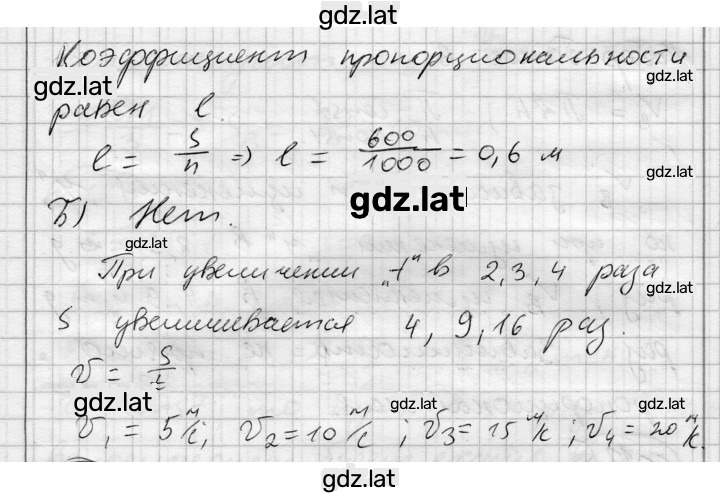 gdz.lat
Коэффициент пропорциональности
gdz.lat
gdz.lat
равен l.
l = S/n => l = 600/1000 = 0,6 м
gdz.lat
gdz.lat
Б) Нет.
gdz.lat
При увеличении „t“ в 2, 3, 4 раза
gdz.lat
S увеличивается 4, 9, 16 раз.
v = S/t
gdz.lat
gdz.lat
gdz.lat
v₁ = 5 м/с; v₂ = 10 м/с; v₃ = 15 м/с; v₄ = 20 м/с.
gdz.lat